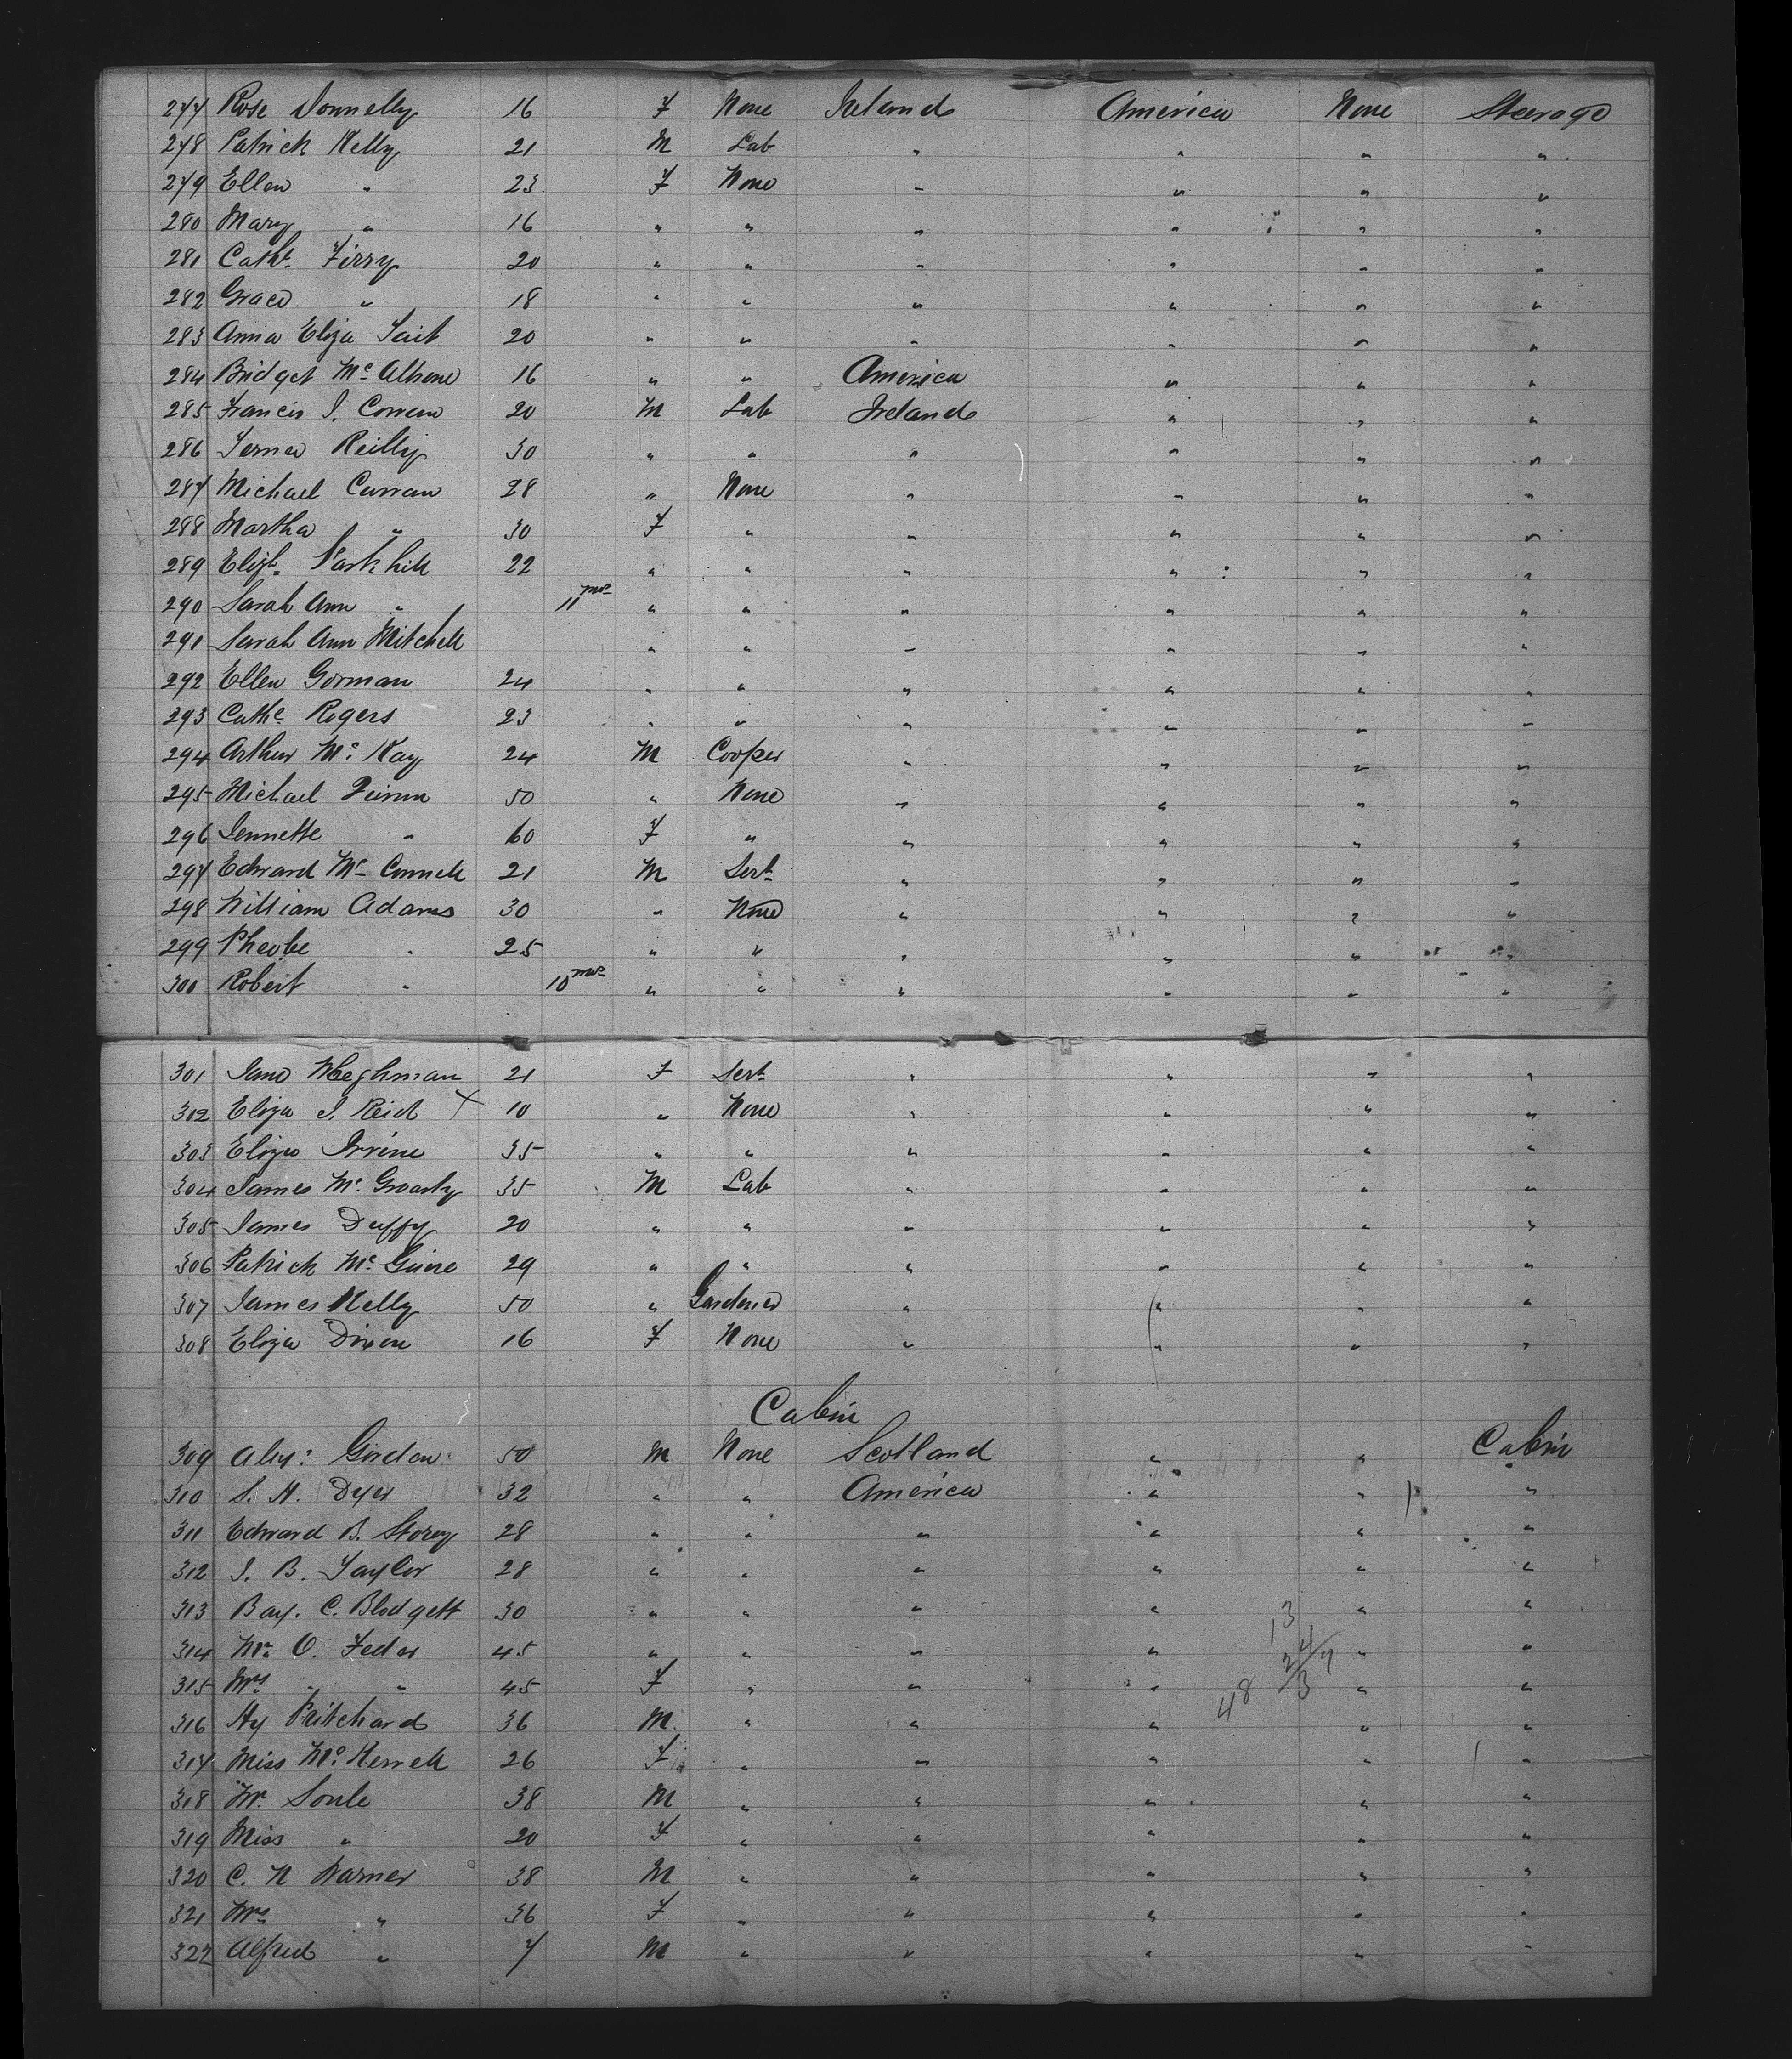 277 Rose Donnelly 16 F None Ireland America None Steerage
278 Patrick Kelly 21 M Lab " " " "
279 Ellen " 23 F None " " " "
280 Mary " 16 " " " " " "
281 Cath. Firry 20 " " " " " "
282 Grace " 18 " " " " " "
283 Anna Eliza Tait 20 " " " " " "
284 Bridget Mc 16 " " America " " "
285 Francis J. Curran 20 M Lab Ireland " " "
286 Reilly 30 " " " " " "
287 Michael Curran 28 " None " " " "
288 Martha " 30 F " " " " "
289 Elizh. Parkhill 22 " " " " " "
290 Sarah Ann " 11 mos " " " " " "
291 Sarah Ann Mitchell " " " " " "
292 Ellen Gorman 24 " " " " " "
293 Cathe. Rogers 23 " " " " " "
294 Arthur Mc Kay 24 M Cooper " " " "
295 Michael 50 " None " " " "
296 Jennette " 60 F " " " " "
297 Edward Mc Connell 21 M Sert. " " " "
298 William Adams 30 " None " " " "
299 Pheobe " 25 " " " " " "
300 Robert " 10 mos " " " " " "
301 Jane 21 F Sert. " " " "
302 Eliza J. Reid X 10 " None " " " "
303 Eliza Irvine 35 " " " " " "
304 James Mc Groarty 35 M Lab " " " "
305 James Duffy 20 " " " " " "
306 Patrick Mc Guire 29 " " " " " "
307 James Kelly 50 " Gardener " " " "
308 Eliza Dixon 16 F None " " " "
Cabin
309 Alex: Gordon 50 M None Scotland " " Cabin
310 S. H. Dyer 32 " " America " " "
311 Edward B. Storey 28 " " " " " "
312 J. B. Taylor 28 " " " " " "
313 C. Blodgett 30 " " " " " "
13
314 Mr. O. Feder 45 " " " " " "
24/7
315 Mrs " " 45 F " " " " "
48 3
316 Hy Pritchard 36 M " " " " "
317 Miss Mc Kerrell 26 F " " " " "
318 Mr. Soule 38 M " " " " "
319 Miss " 20 F " " " " "
320 C. N Warner 38 M " " " " "
321 Mrs " 36 F " " " " "
322 Alfred " 7 M " " " " "